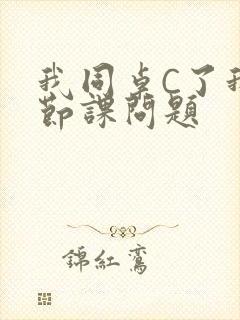 我同桌C了我
節課問題
錦紅鸞